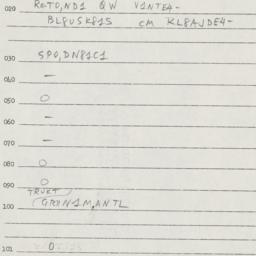 029 RETO,ND1 QW V1NTE4-
BL8USK81S CM KL8AJDE4-
030 SPO,DN81C1
040 -
050 O
060 -
070 -
080 O
090 O
TRUET
100 GRAN1M,ANTL
101 O